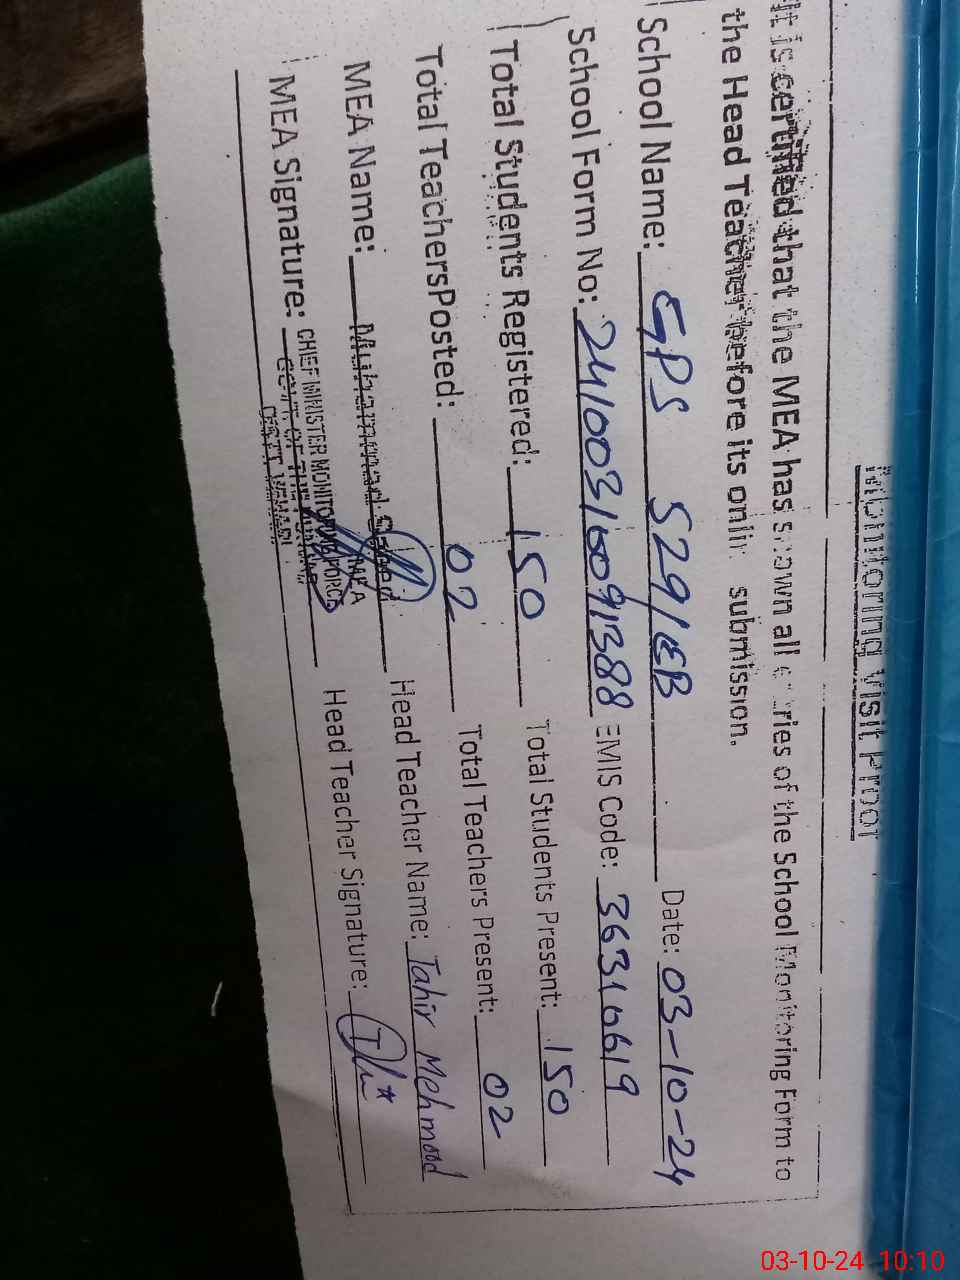 Monitoring Visit Proof
It is certified that the MEA has shown all entries of the School Monitoring Form to
the Head Teacher before its online submission.
School Name: GPS 529/EB Date: 03-10-24
School Form No: 24100316091388 EMIS Code: 36310619
Total Students Registered: 150 Total Students Present: 150
Total TeachersPosted: 02 Total Teachers Present: 02
MEA Name: Muhammad Saeed Head Teacher Name: Tahir Mehmood
MEA
MEA Signature: Head Teacher Signature:
CHIEF MINISTER MONITORING FORCE
GOVT OF THE PUNJAB
DISTT VEHARI
03-10-24 10:10